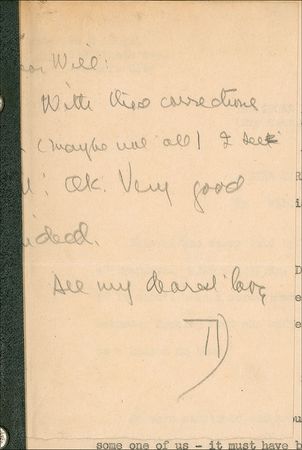 ear Will:
With these corrections
(maybe not all) I see
it: OK. Very good
indeed.
All my dearest love
R
i
D
e
e
u
some one of us - it must have b